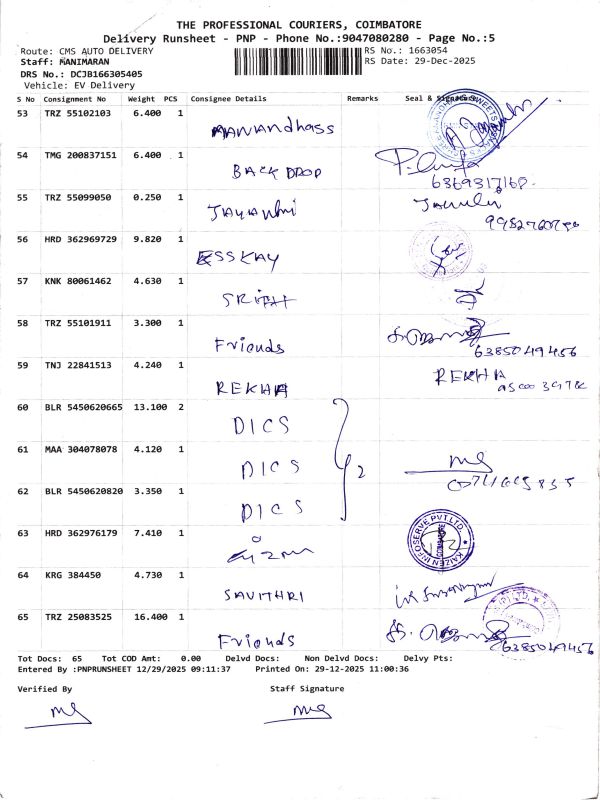 THE PROFESSIONAL COURIERS, COIMBATORE
Delivery Runsheet - PNP - Phone No.:9047080280 - Page No.:5
Route: CMS AUTO DELIVERY RS No.: 1663054
Staff: MANIMARAN RS Date: 29-Dec-2025
DRS No.: DCJB166305405
Vehicle: EV Delivery
S No Consignment No Weight PCS Consignee Details Remarks Seal & Signature
53 TRZ 55102103 6.400 1
54 TMG 200837151 6.400 1 BACK DROP
6369317168.
55 TRZ 55099050 0.250 1
56 HRD 362969729 9.820 1 ESSKAY
57 KNK 80061462 4.630 1
58 TRZ 55101911 3.300 1 Friends
6385049456
59 TNJ 22841513 4.240 1 REKHA REKHA
60 BLR 5450620665 13.100 2 DICS
61 MAA 304078078 4.120 1 DICS 2
62 BLR 5450620820 3.350 1 DICS
63 HRD 362976179 7.410 1 KAIZEN INFOSERVE PVT LTD COIMBATORE
64 KRG 384450 4.730 1 SAVITHRI
65 TRZ 25083525 16.400 1 Friends
6385049456
Tot Docs: 65 Tot COD Amt: 0.00 Delvd Docs: Non Delvd Docs: Delvy Pts:
Entered By :PNPRUNSHEET 12/29/2025 09:11:37 Printed On: 29-12-2025 11:00:36
Verified By Staff Signature